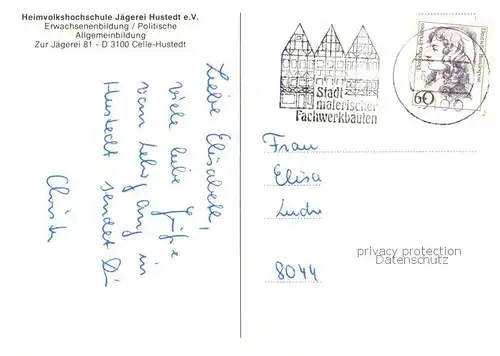 Heimvolkshochschule Jägerei Hustedt e.V.
Erwachsenenbildung / Politische
Allgemeinbildung
Zur Jägerei 81 - D 3100 Celle-Hustedt
Liebe Elisabeth,
viele liebe Grüße
vom Lehrgang in
Hustedt sendet Di
Christ
Stadt
malerischer
Fachwerkbauten
Deutsche Bundespost
60
Frau
Elisa
8044
privacy protection
Datenschutz